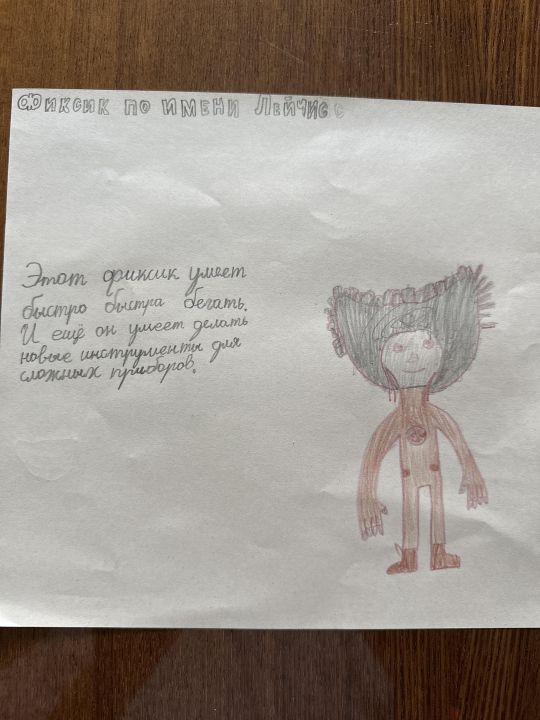 Фиксик по имени Лейчисс
Этот фиксик умеет
быстро быстра бегать.
И ещё он умеет делать
новые инструменты для
сложных приборов.